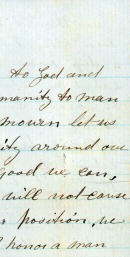 to God and
manity to man
mourn let us
ity around our
good we can,
will not cause
position, we
honor a man